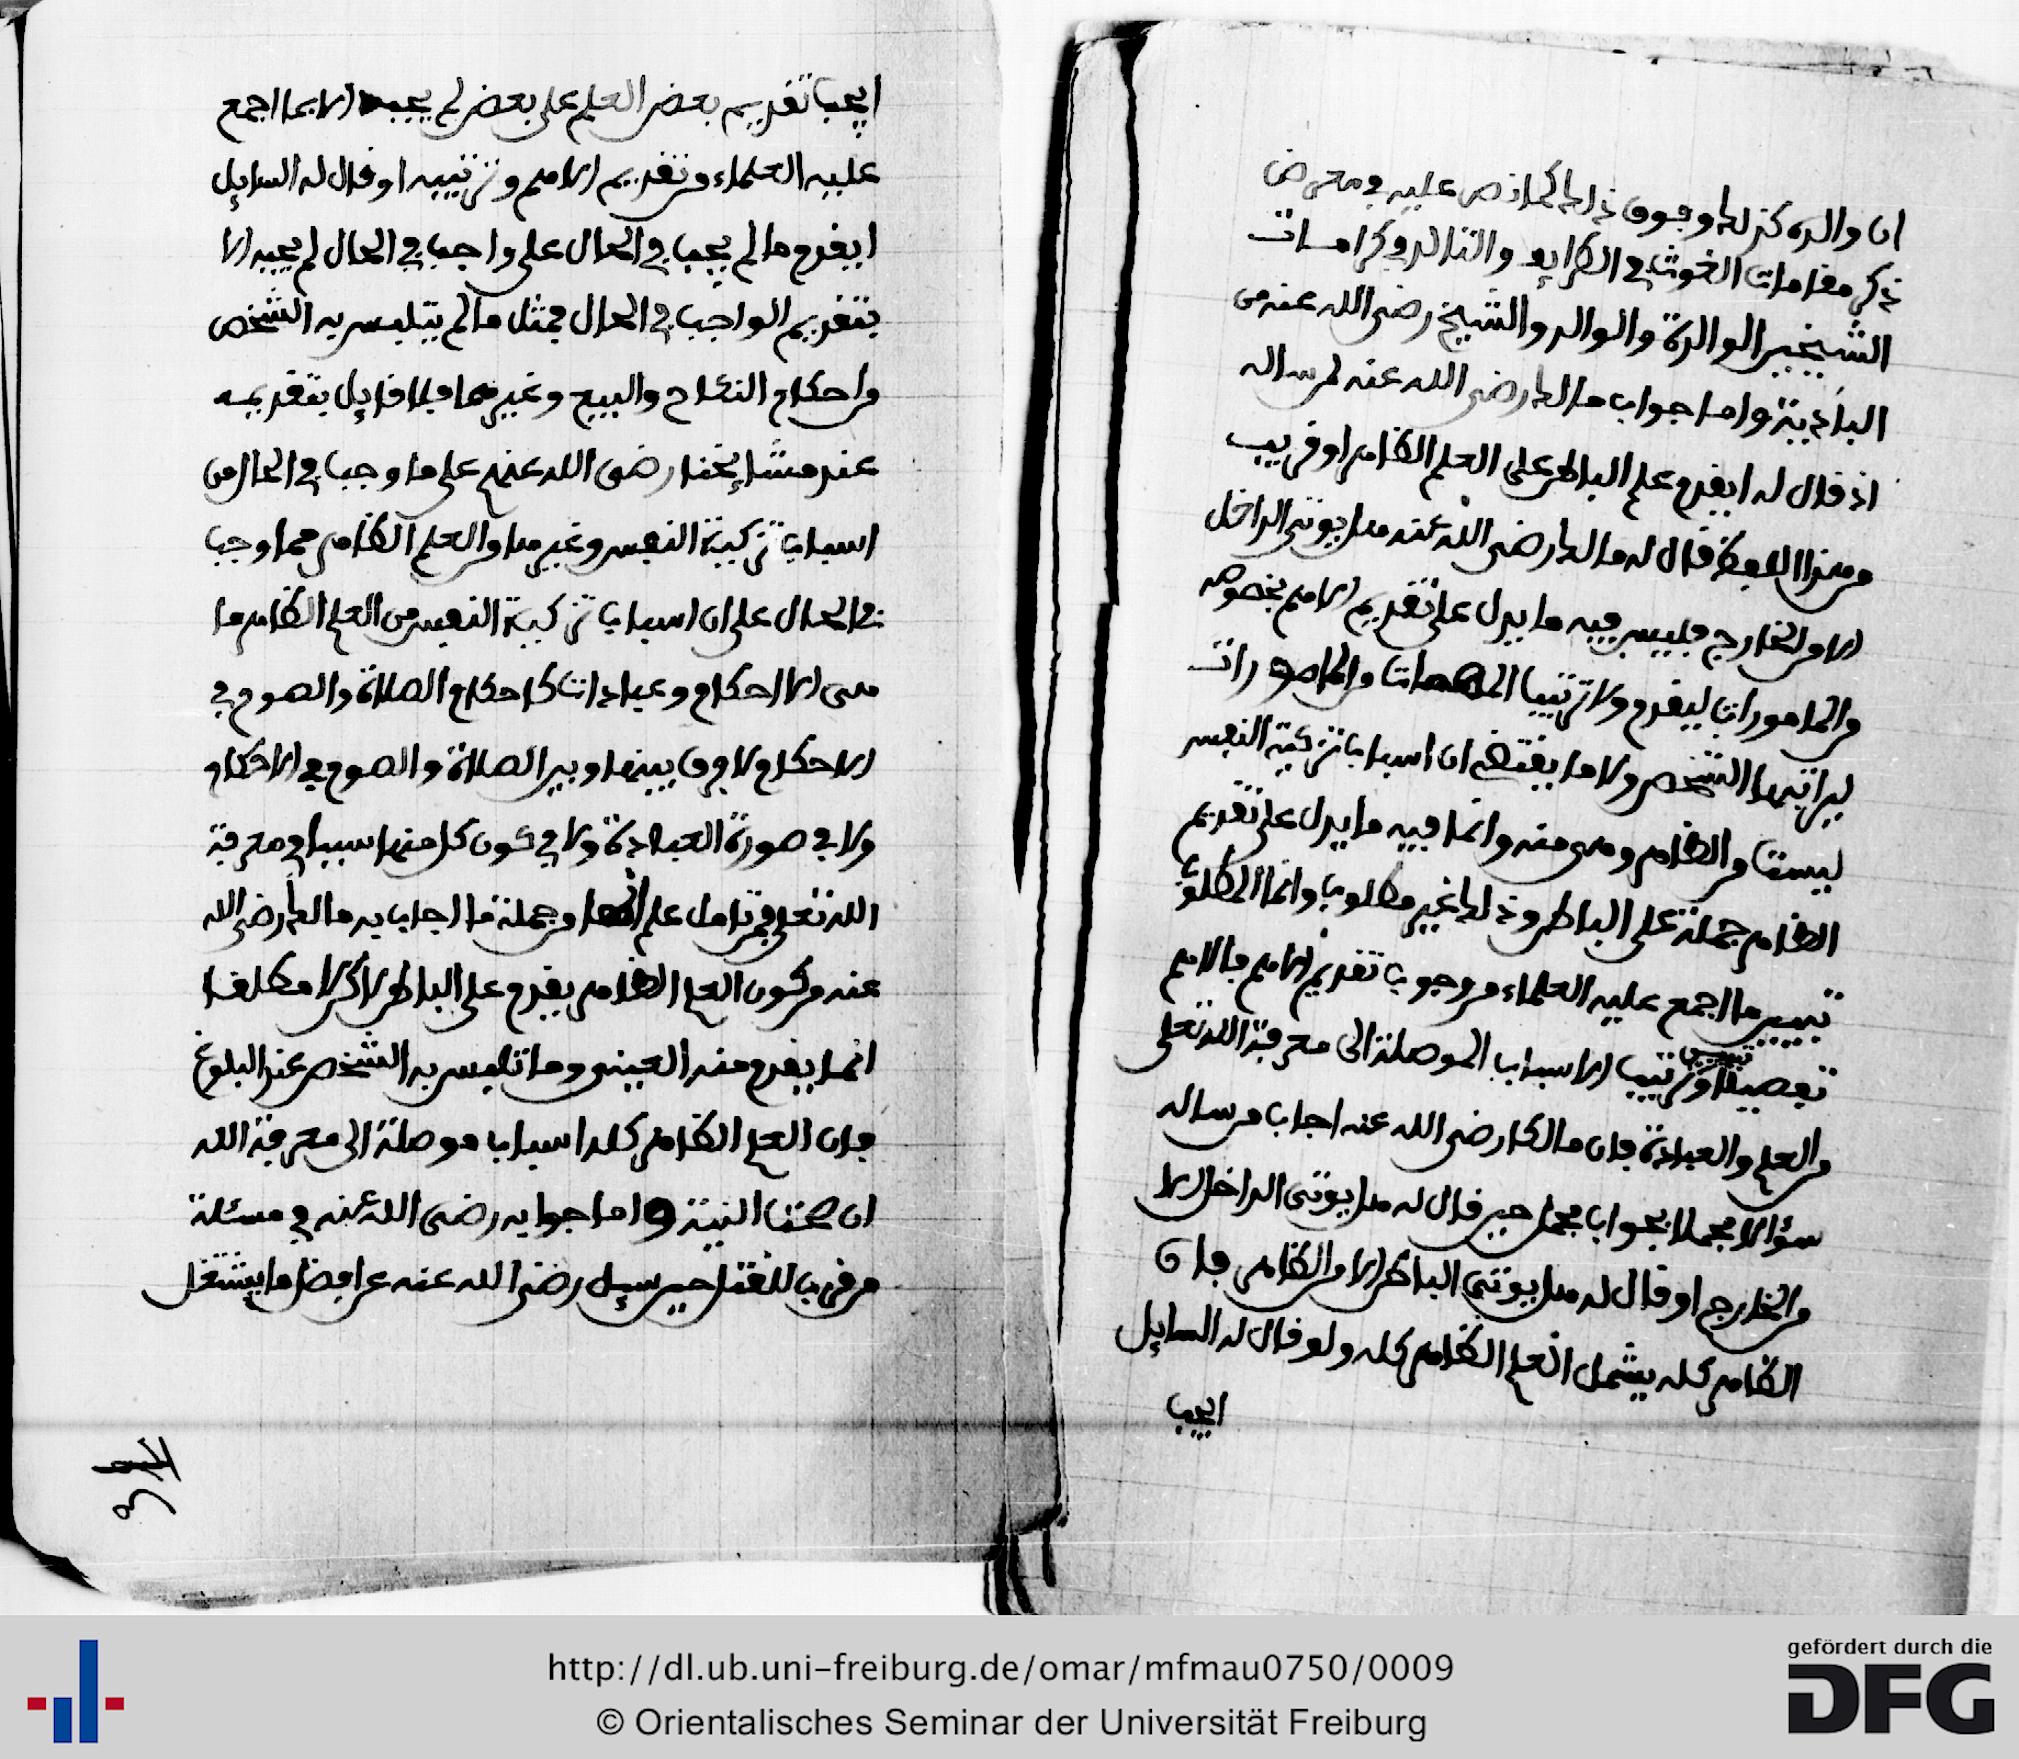 ان والده كذلك وفوق ذلك كما نص عليه في معرض
ذكر مقامات الغوث في الطرايف والتالد في كرامات
الشيخين الوالدة والوالد والشيخ رضى الله عنه من
البادية واما جواب مالك رضى الله عنه لمن ساله
اذ قال له ايقدم علم الباطن على العلم الظاهر او قريب
من هذا اللفظ فقال له مالك رضى الله عنه هل يوتى الداخل
الا من الخارج فليس فيه ما يدل على تقديم الاهم بخصوصه
من المامورات ليقدم ولا ترتيب المامورات
ليراتبها الشخص ولا ما يقتضى ان اسباب تزكية النفس
ليست من الظاهر وهى منه وانما فيه ما يدل على تقديم
الظاهر جملة على الباطن وذلك غير مطلوب وانما المطلوب
تبيين ما اجمع عليه العلماء من وجوب تقديم الاهم فالاهم
تفصيلا وترتيب الاسباب الموصلة الى معرفة الله تعلى
من العلم والعبادة فان مالكا رضى الله عنه اجاب من ساله
سؤالا مجملا بجواب مجمل حين قال له هل يوتى الداخل الا
من الخارج او قال له هل يوتى الباطن الا من الظاهر فان
الظاهر كله يشمل العلم الظاهر كله ولو قال له السايل
ايجب
ايجب تقديم بعض العلم على بعض لم يجبه الا بما اجمع
عليه العلماء من تقديم الاهم وترتيبه او قال له السايل
ايقدم ما لم يجب في الحال على واجب في الحال لم يجبه الا
بتقديم الواجب في الحال فمثل ما لم يتلبس به الشخص
من احكام النكاح والبيع وغيرهما فلا قايل بتقديمه
عند مشايخنا رضى الله عنهم على ما وجب في الحال من
اسباب تزكية النفس وغيرها والعلم الظاهر مما وجب
في الحال على ان اسباب تزكية النفس من العلم الظاهر ما
هى الا احكام وعبادات كاحكام الصلاة والصوم في
الاحكام ولا فرق بينها وبين الصلاة والصوم في الاحكام
ولا في صورة العبادة ولا في كون كل منها سببا في معرفة
الله تعلى فمن تامل علم انها من جملة ما اجاب به مالك رضى الله
عنه من كون العلم الظاهر يقدم على الباطن لاكن لا مطلقا
انما يقدم منه العينى وما تلبس به الشخص عند البلوغ
فان العلم الظاهر كله اسباب موصلة الى معرفة الله
ان صحت النية واما جوابه رضى الله عنه في مسئلة
من قرب للقتل حين سيل رضى الله عنه عن افضل ما يشتغل
http://dl.ub.uni-freiburg.de/omar/mfmau0750/0009
© Orientalisches Seminar der Universität Freiburg
gefördert durch die
DFG